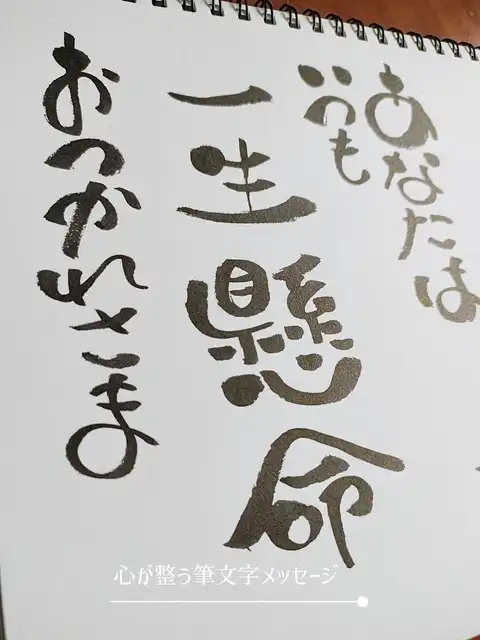 あなたは
いつも
一生懸命
おつかれさま
心が整う筆文字メッセージ